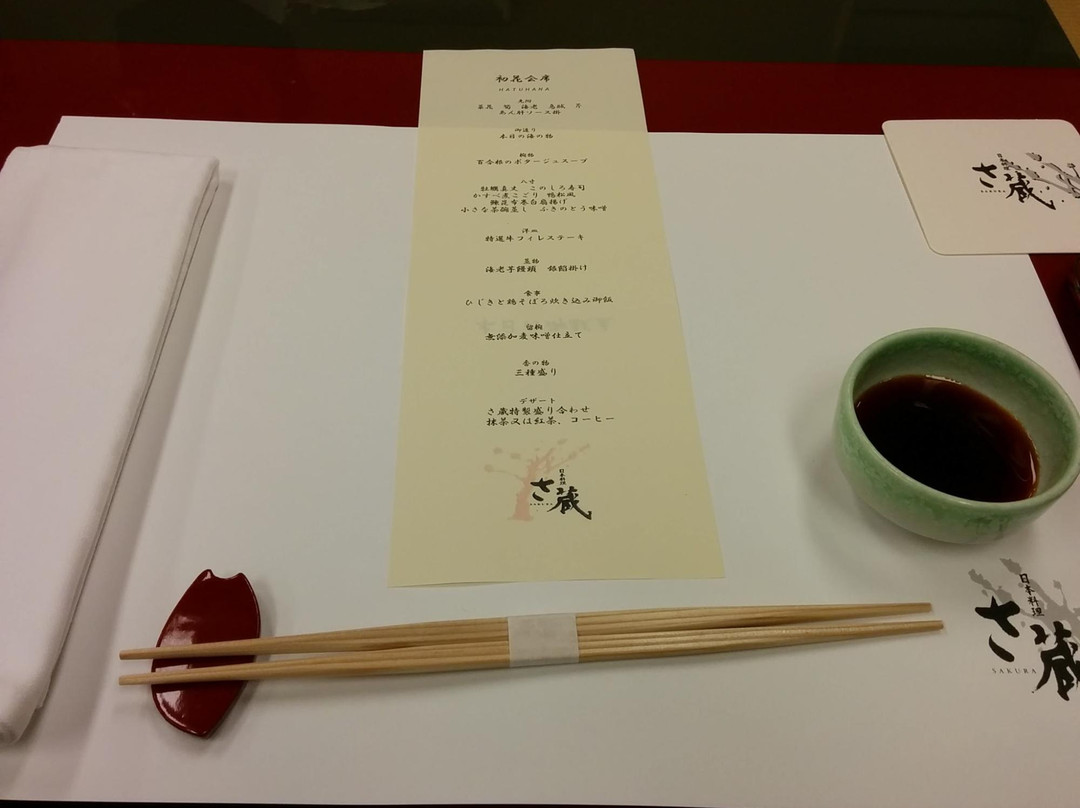 初花会席
HATUHANA
先附
菜花 筍 海老 烏賊 芹
あん肝ソース掛
御造り
本日の海の物
椀物
百合根のポタージュスープ
八寸
牡蠣真丈 このしろ寿司
かすべ煮こごり 鴨松風
鰊昆布巻白扇揚げ
小さな茶碗蒸し ふきのとう味噌
洋皿
特選牛フィレステーキ
蒸物
海老芋饅頭 銀餡掛け
食事
ひじきと鶏そぼろ炊き込み御飯
留椀
無添加麦味噌仕立て
香の物
三種盛り
デザート
さ蔵特製盛り合わせ
抹茶又は紅茶、コーヒー
日本料理
さ蔵
SAKURA
さ蔵
SAKURA
日本料理
さ蔵
SAKURA